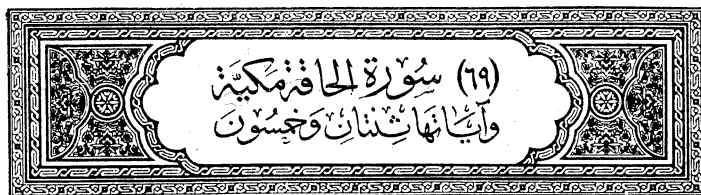 (٦٩) سُورَةِ الحَاقَّة مَكيَّة
وَآيَاتهَا ثِنْتَانِ وَخَمْسُونَ